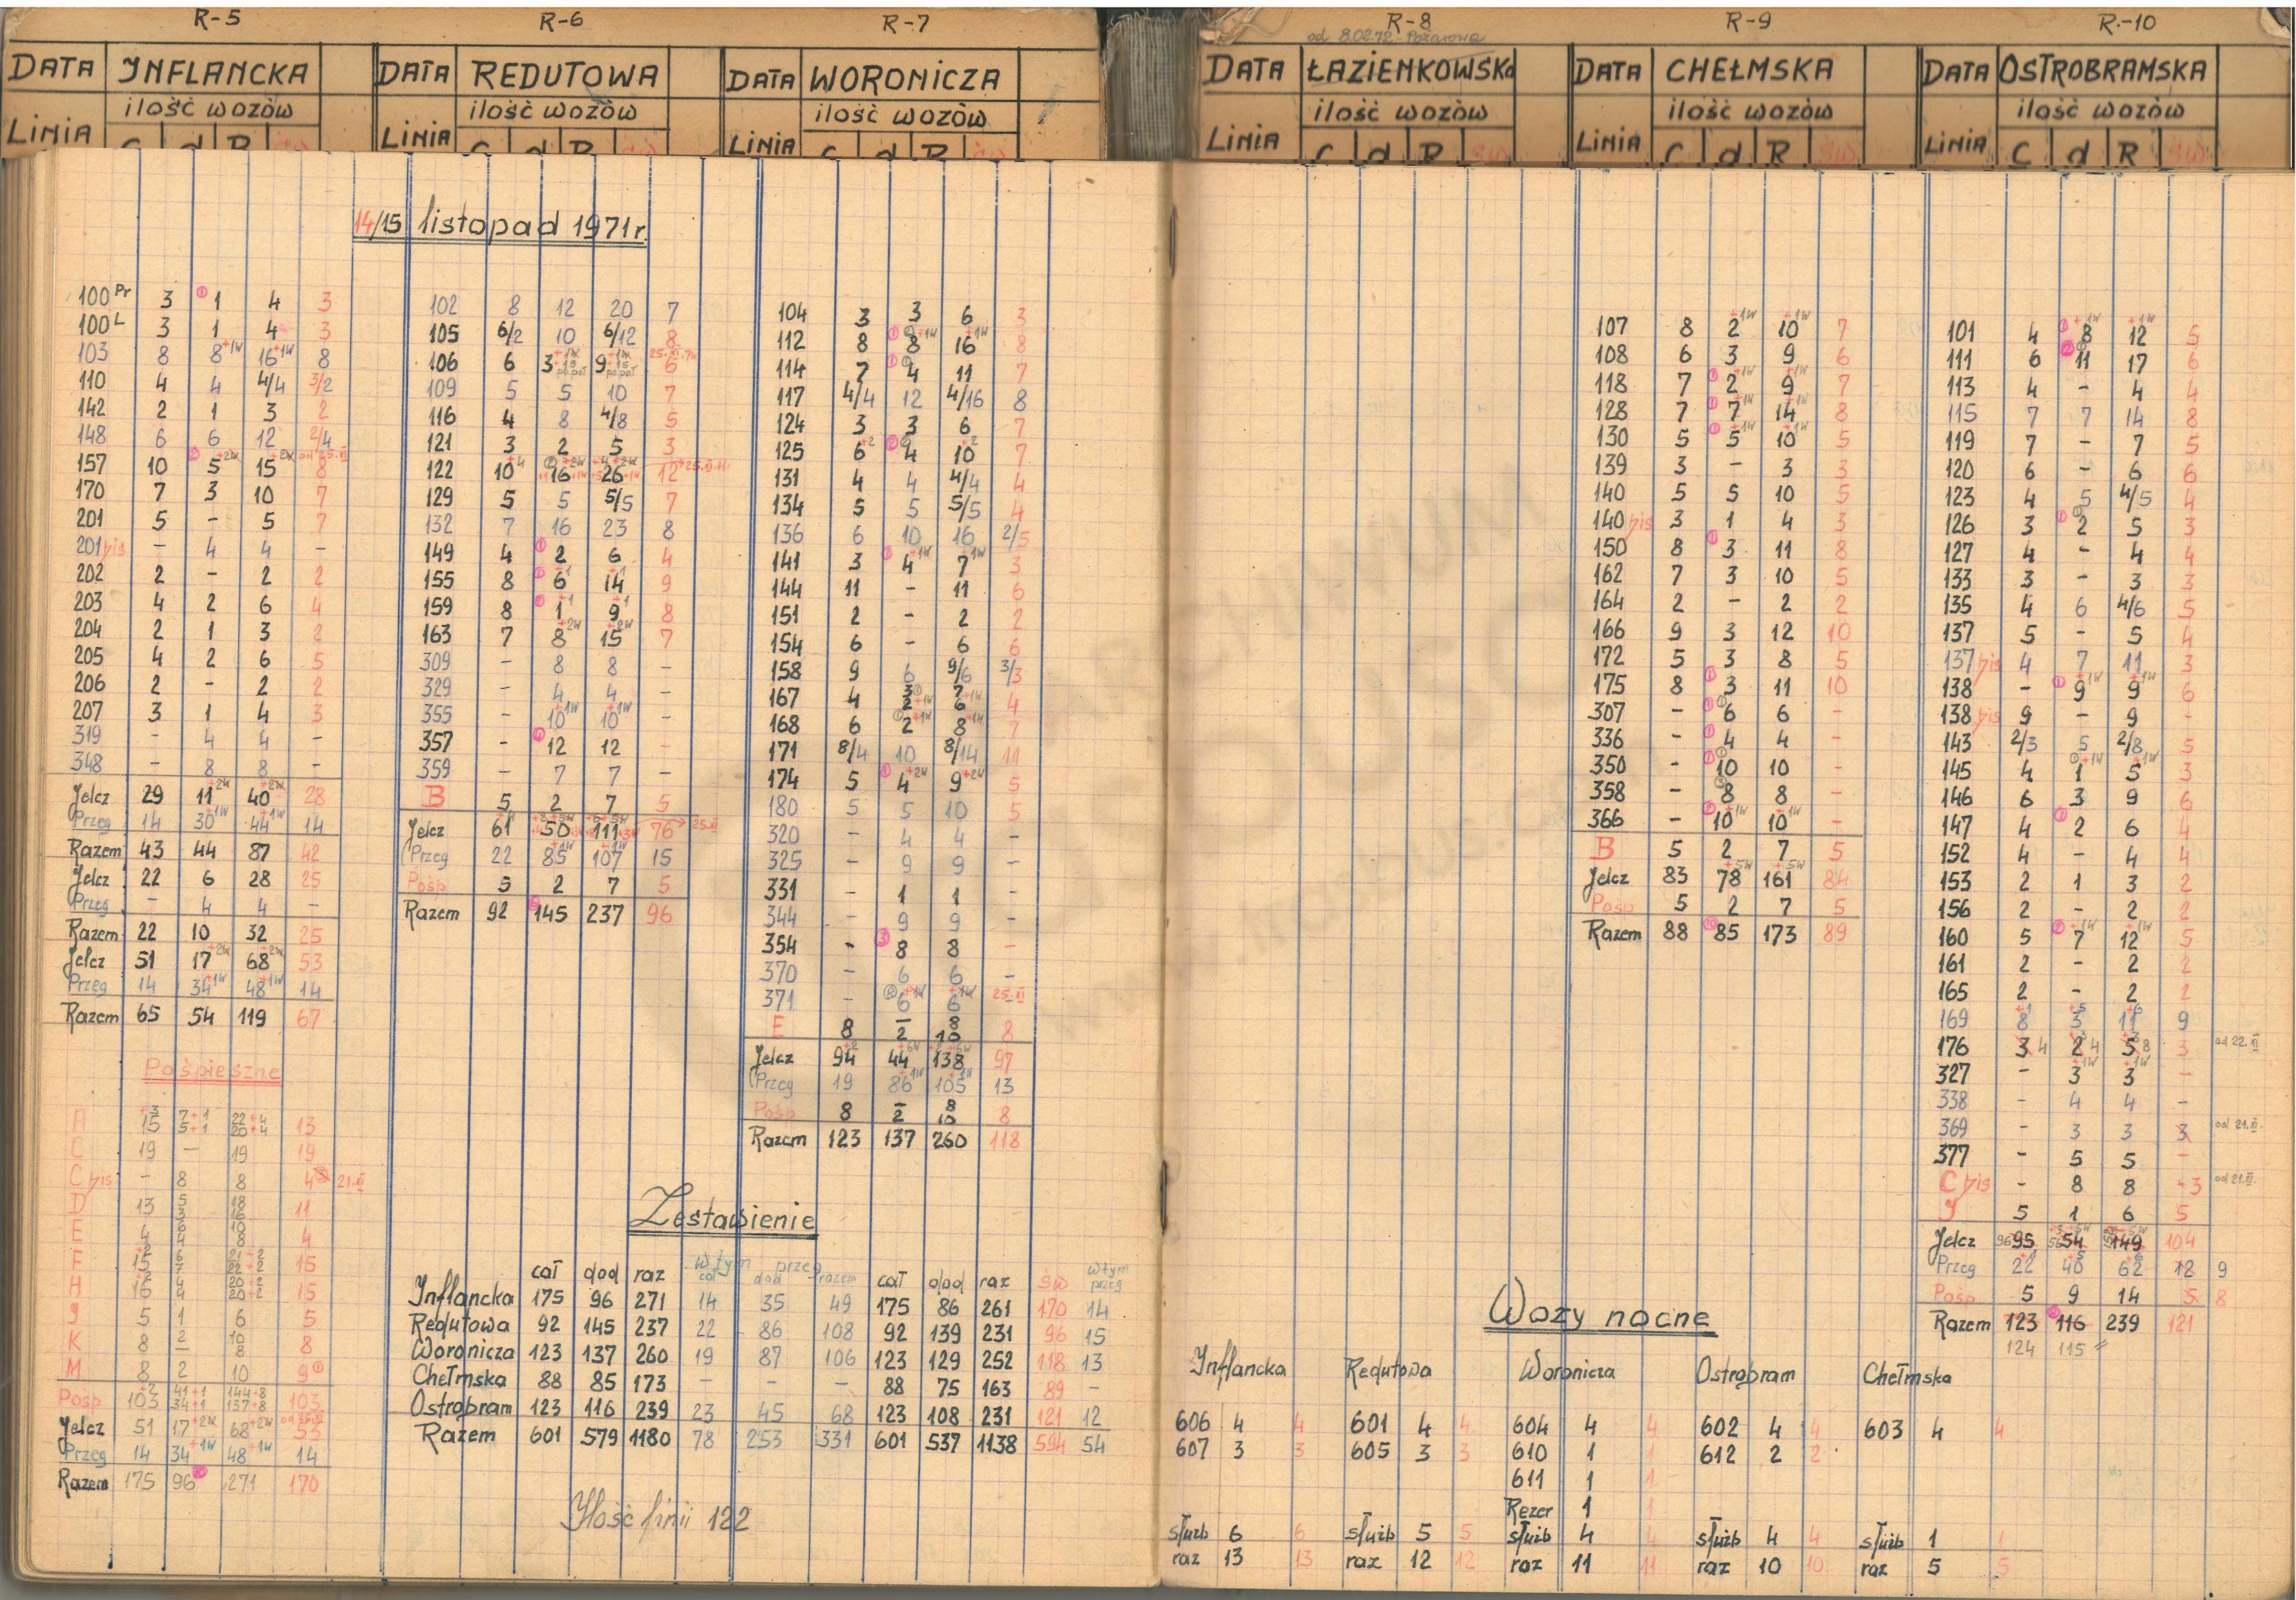 R-5
DATA INFLANCKA
ilość wozów
LINIA C d R św
R-6
DATA REDUTOWA
ilość wozów
LINIA C d R św
R-7
DATA WORONICZA
ilość wozów
LINIA C d R św
R-8
od 8.02.72 - Pożarowa
DATA ŁAZIENKOWSKA
ilość wozów
LINIA C d R św
R-9
DATA CHEŁMSKA
ilość wozów
LINIA C d R św
R-10
DATA OSTROBRAMSKA
ilość wozów
LINIA C d R św
14/15 listopad 1971r.
100 Pr 3 1 4 3
100 L 3 1 4 3
103 8 8+1W 16+1W 8
110 4 4 4/4 3/2
142 2 1 3 2
148 6 6 12 2/4
157 10 5+2W 15+2W 8
170 7 3 10 7
201 5 - 5 7
201 bis - 4 4 -
202 2 - 2 2
203 4 2 6 4
204 2 1 3 2
205 4 2 6 5
206 2 - 2 2
207 3 1 4 3
319 - 4 4 -
348 - 8 8 -
Jelcz 29 11+2W 40+2W 28
Przeg 14 30+1W 44+1W 14
Razem 43 44 87 42
Jelcz 22 6 28 25
Przeg - 4 4 -
Razem 22 10 32 25
Jelcz 51 17+2W 68+2W 53
Przeg 14 34+1W 48+1W 14
Razem 65 54 119 67
Pośpieszne
A 15 13
C 19 - 19 19
C bis - 8 8 4 21.XI
D 13 5 3 18 16 11
E 4 6 4 10 8 4
F 15 6 7 21+2 22+2 15
H 16 4 4 20+2 20+2 15
J 5 1 6 5
K 8 2 - 10 8 8
M 8 2 10 9
Pośp 103 41+1 34+1 144+8 137+8 103
Jelcz 51 17+2W 68+2W 53
Przeg 14 34+1W 48+1W 14
Razem 175 96 271 170
102 8 12 20 7
105 6/2 10 6/12 8
106 6 3 9 6
109 5 5 10 7
116 4 8 4/8 5
121 3 2 5 3
122 10 16 26 12
129 5 5 5/5 7
132 7 16 23 8
149 4 2 6 4
155 8 6 14 9
159 8 1 9 8
163 7 8+2W 15+2W 7
309 - 8 8 -
329 - 4 4 -
355 - 10+1W 10+1W -
357 - 12 12 -
359 - 7 7 -
B 5 2 7 5
Jelcz 61 50 111 76 25.XI
Przeg 22 85+1W 107+1W 15
Pośp 5 2 7 5
Razem 92 145 237 96
104 3 3 6 3
112 8 8+1W 16+1W 8
114 7 4 11 7
117 4/4 12 4/16 8
124 3 3 6 7
125 6+2 4 10+2 7
131 4 4 4/4 4
134 5 5 5/5 4
136 6 10 16 2/5
141 3 4+1W 7+1W 3
144 11 - 11 6
151 2 - 2 2
154 6 - 6 6
158 9 6 9/6 3/3
167 4 3 2+1W 7 6+1W 4
168 6 2+1W 8+1W 7
171 8/4 10 8/14 11
174 5 4+2W 9+2W 5
180 5 5 10 5
320 - 4 4 -
325 - 9 9 -
331 - 1 1 -
344 - 9 9 -
354 - 8 8 -
370 - 6 6 -
371 - 6+1W 6+1W 25.XI
E 8 - 2 8 10 8
Jelcz 94+2 44+6W 138 97
Przeg 19 86+1W 105+1W 13
Pośp 8 - 2 8 10 8
Razem 123 137 260 118
Zestawienie
cał dod raz w tym przeg cał dod razem cał dod raz św w tym przeg
Inflancka 175 96 271 14 35 49 175 86 261 170 14
Redutowa 92 145 237 22 86 108 92 139 231 96 15
Woronicza 123 137 260 19 87 106 123 129 252 118 13
Chełmska 88 85 173 - - - 88 75 163 89 -
Ostrobram 123 116 239 23 45 68 123 108 231 121 12
Razem 601 579 1180 78 253 331 601 537 1138 594 54
Ilość linii 122
107 8 2+1W 10+1W 7
108 6 3 9 6
118 7 2+1W 9+1W 7
128 7 7+1W 14+1W 8
130 5 5+1W 10+1W 5
139 3 - 3 3
140 5 5 10 5
140 bis 3 1 4 3
150 8 3 11 8
162 7 3 10 5
164 2 - 2 2
166 9 3 12 10
172 5 3 8 5
175 8 3 11 10
307 - 6 6 -
336 - 4 4 -
350 - 10 10 -
358 - 8 8 -
366 - 10+1W 10+1W -
B 5 2 7 5
Jelcz 83 78+5W 161+5W 84
Pośp 5 2 7 5
Razem 88 85 173 89
101 4 8+1W 12+1W 5
111 6 11 17 6
113 4 - 4 4
115 7 7 14 8
119 7 - 7 5
120 6 - 6 6
123 4 5 4/5 4
126 3 2 5 3
127 4 - 4 4
133 3 - 3 3
135 4 6 4/6 5
137 5 - 5 4
137 bis 4 7 11 3
138 - 9+1W 9+1W 6
138 bis 9 - 9 -
143 2/3 5 2/8 5
145 4 1+1W 5+1W 3
146 6 3 9 6
147 4 2 6 4
152 4 - 4 4
153 2 1 3 2
156 2 - 2 2
160 5 7+1W 12+1W 5
161 2 - 2 2
165 2 - 2 2
169 8+1 3+5 11+6 9
176 3 4 2 4 5 8 3 od 22.XI
327 - 3+1W 3+1W -
338 - 4 4 -
369 - 3 3 3 od 21.XI.
377 - 5 5 -
C bis - 8 8 -3 od 21.XI.
J 5 1 6 5
Jelcz 96 95 56 54 149 104
Przeg 22 40 62 12 9
Pośp 5 9 14 5 8
Razem 123 116 239 121
124 115 〃
Wozy nocne
Inflancka Redutowa Woronicza Ostrobram Chełmska
606 4 4 601 4 4 604 4 4 602 4 4 603 4 4
607 3 3 605 3 3 610 1 1 612 2 2
611 1 1
Rezer 1 1
służb 6 6 służb 5 5 służb 4 4 służb 4 4 służb 1 1
raz 13 13 raz 12 12 raz 11 11 raz 10 10 raz 5 5